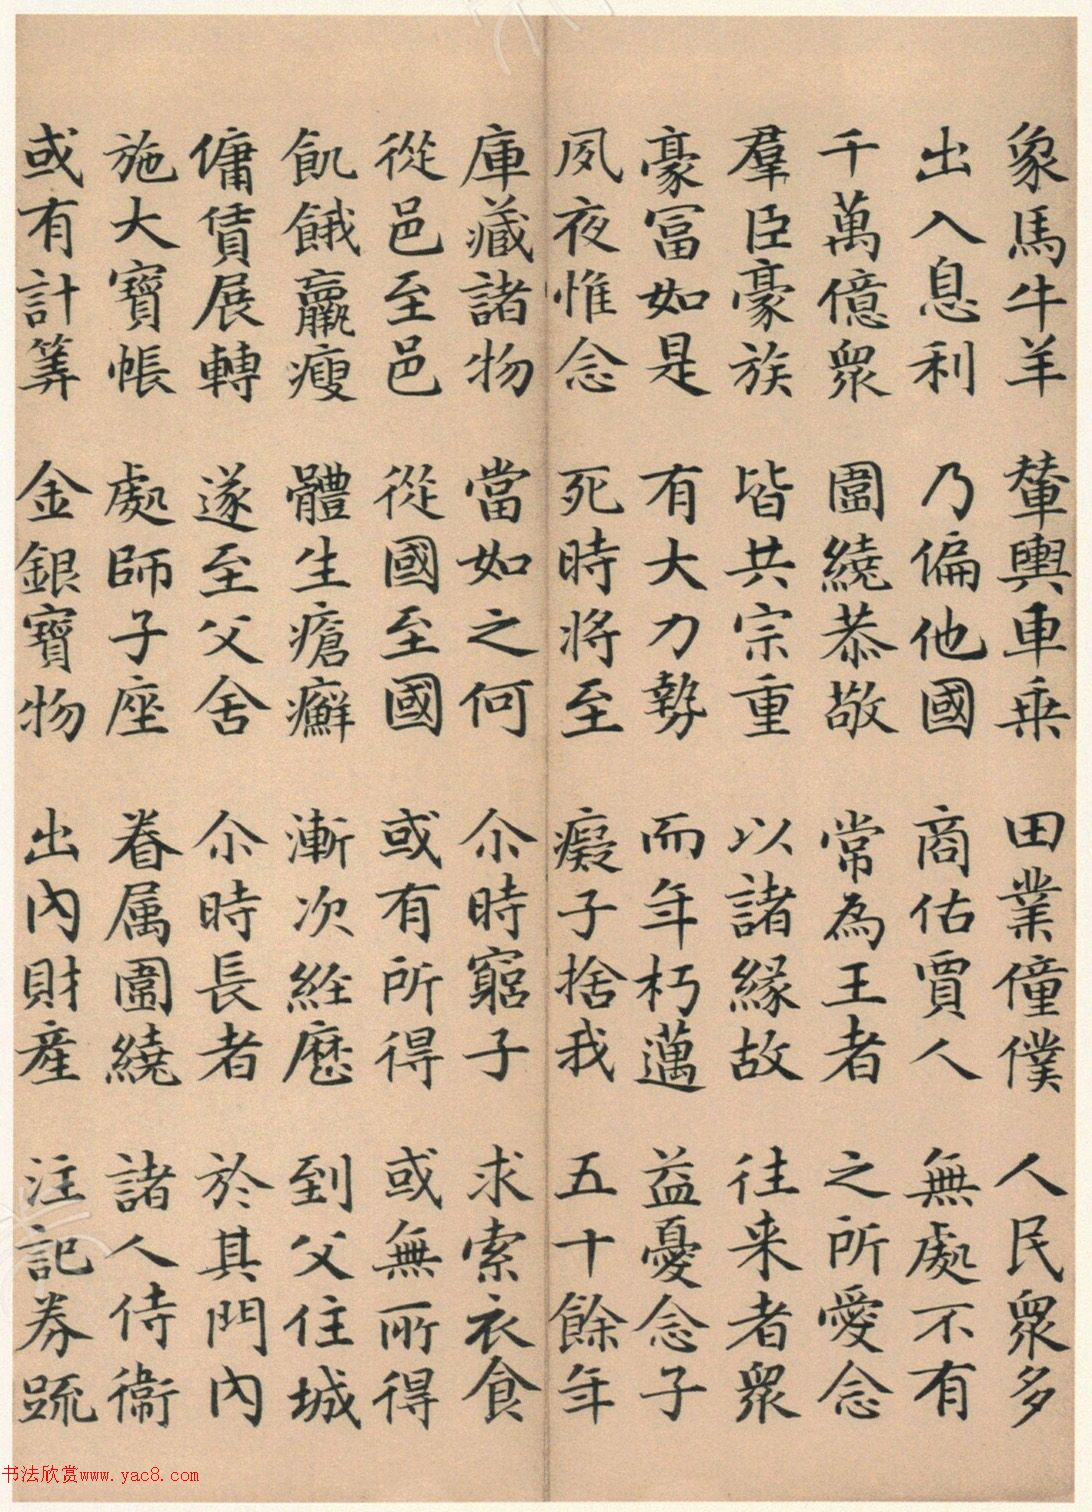 象馬牛羊 輦輿車乗 田業僮僕 人民衆多
出入息利 乃徧他國 商估賈人 無處不有
千萬億衆 圍繞恭敬 常為王者 之所愛念
羣臣豪族 皆共宗重 以諸緣故 往来者衆
豪冨如是 有大力勢 而年朽邁 益憂念子
夙夜惟念 死時將至 癡子捨我 五十餘年
庫藏諸物 當如之何 尒時窮子 求索衣食
從邑至邑 從國至國 或有所得 或無所得
飢餓羸瘦 體生瘡癬 漸次経歷 到父住城
傭賃展轉 遂至父舍 尒時長者 於其門內
施大寶帳 處師子座 眷属圍繞 諸人侍衞
或有計筭 金銀寶物 出內財産 注記券䟽
书法欣赏www.yac8.com